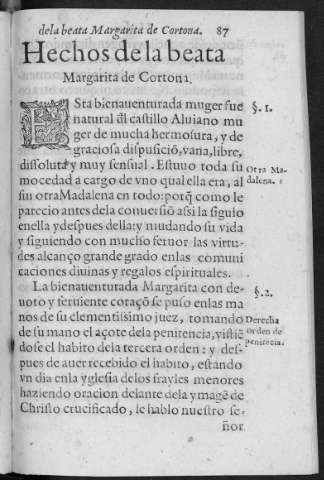 dela beata Margarita de Cortona. 87
Hechos de la beata
Margarita de Cortona.
ESta bienauenturada muger fue §. 1.
natural dl̃ castillo Aluiano mu
ger de mucha hermosura, y de
graciosa dispusiciõ, vana, libre,
dissoluta y muy sensual. Estuuo toda su
mocedad a cargo de vno qual ella era, al Otra Ma-
sin otra Madalena en todo: porq̃ como le dalena.
parecio antes dela conuersiõ assi la siguio
en ella y despues della: y mudando su vida
y siguiendo con mucho feruor las virtu-
des alcanço grande grado enlas comuni
caciones diuinas y regalos espirituales.
La bienauenturada Margarita con de- §. 2.
uoto y feruiente coraçõ se puso enlas ma
nos de su clementissimo juez, tomando Derecha
de su mano el açote dela penitencia, vistiẽ orden de
dose el habito dela tercera orden: y des- penitecia.
pues de auer recebido el habito, estando
vn dia enla yglesia delos frayles menores
haziendo oracion delante dela ymagẽ de
Christo crucificado, le hablo nuestro se-
ñor